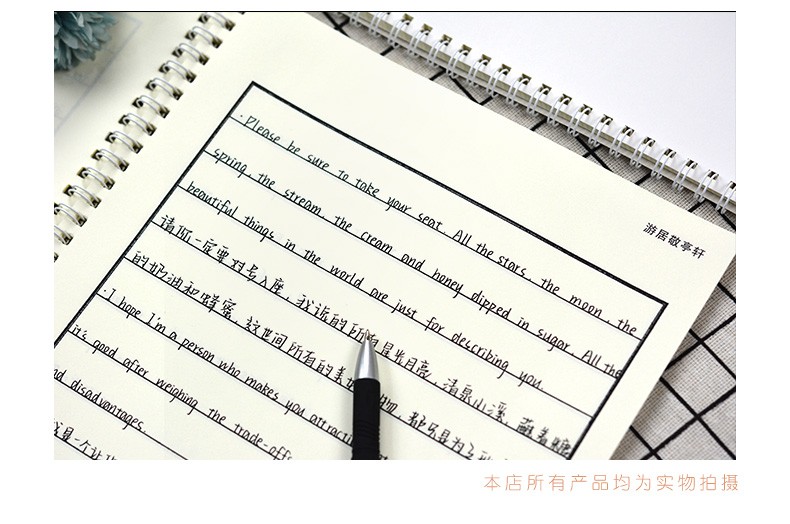 游居敬亭轩
· Please be sure to take your seat. All the stars, the moon, the
spring, the stream, the cream and honey dipped in sugar. All the
beautiful things in the world are just for describing you.
请你一定要对号入座，我说的所有星光月亮，清泉小溪，蘸着糖
的奶油和蜂蜜，这世间所有的美
· I hope I'm a person who makes you
it's good after weighing the trade-offs
disadvantages.
是一个让
本店所有产品均为实物拍摄